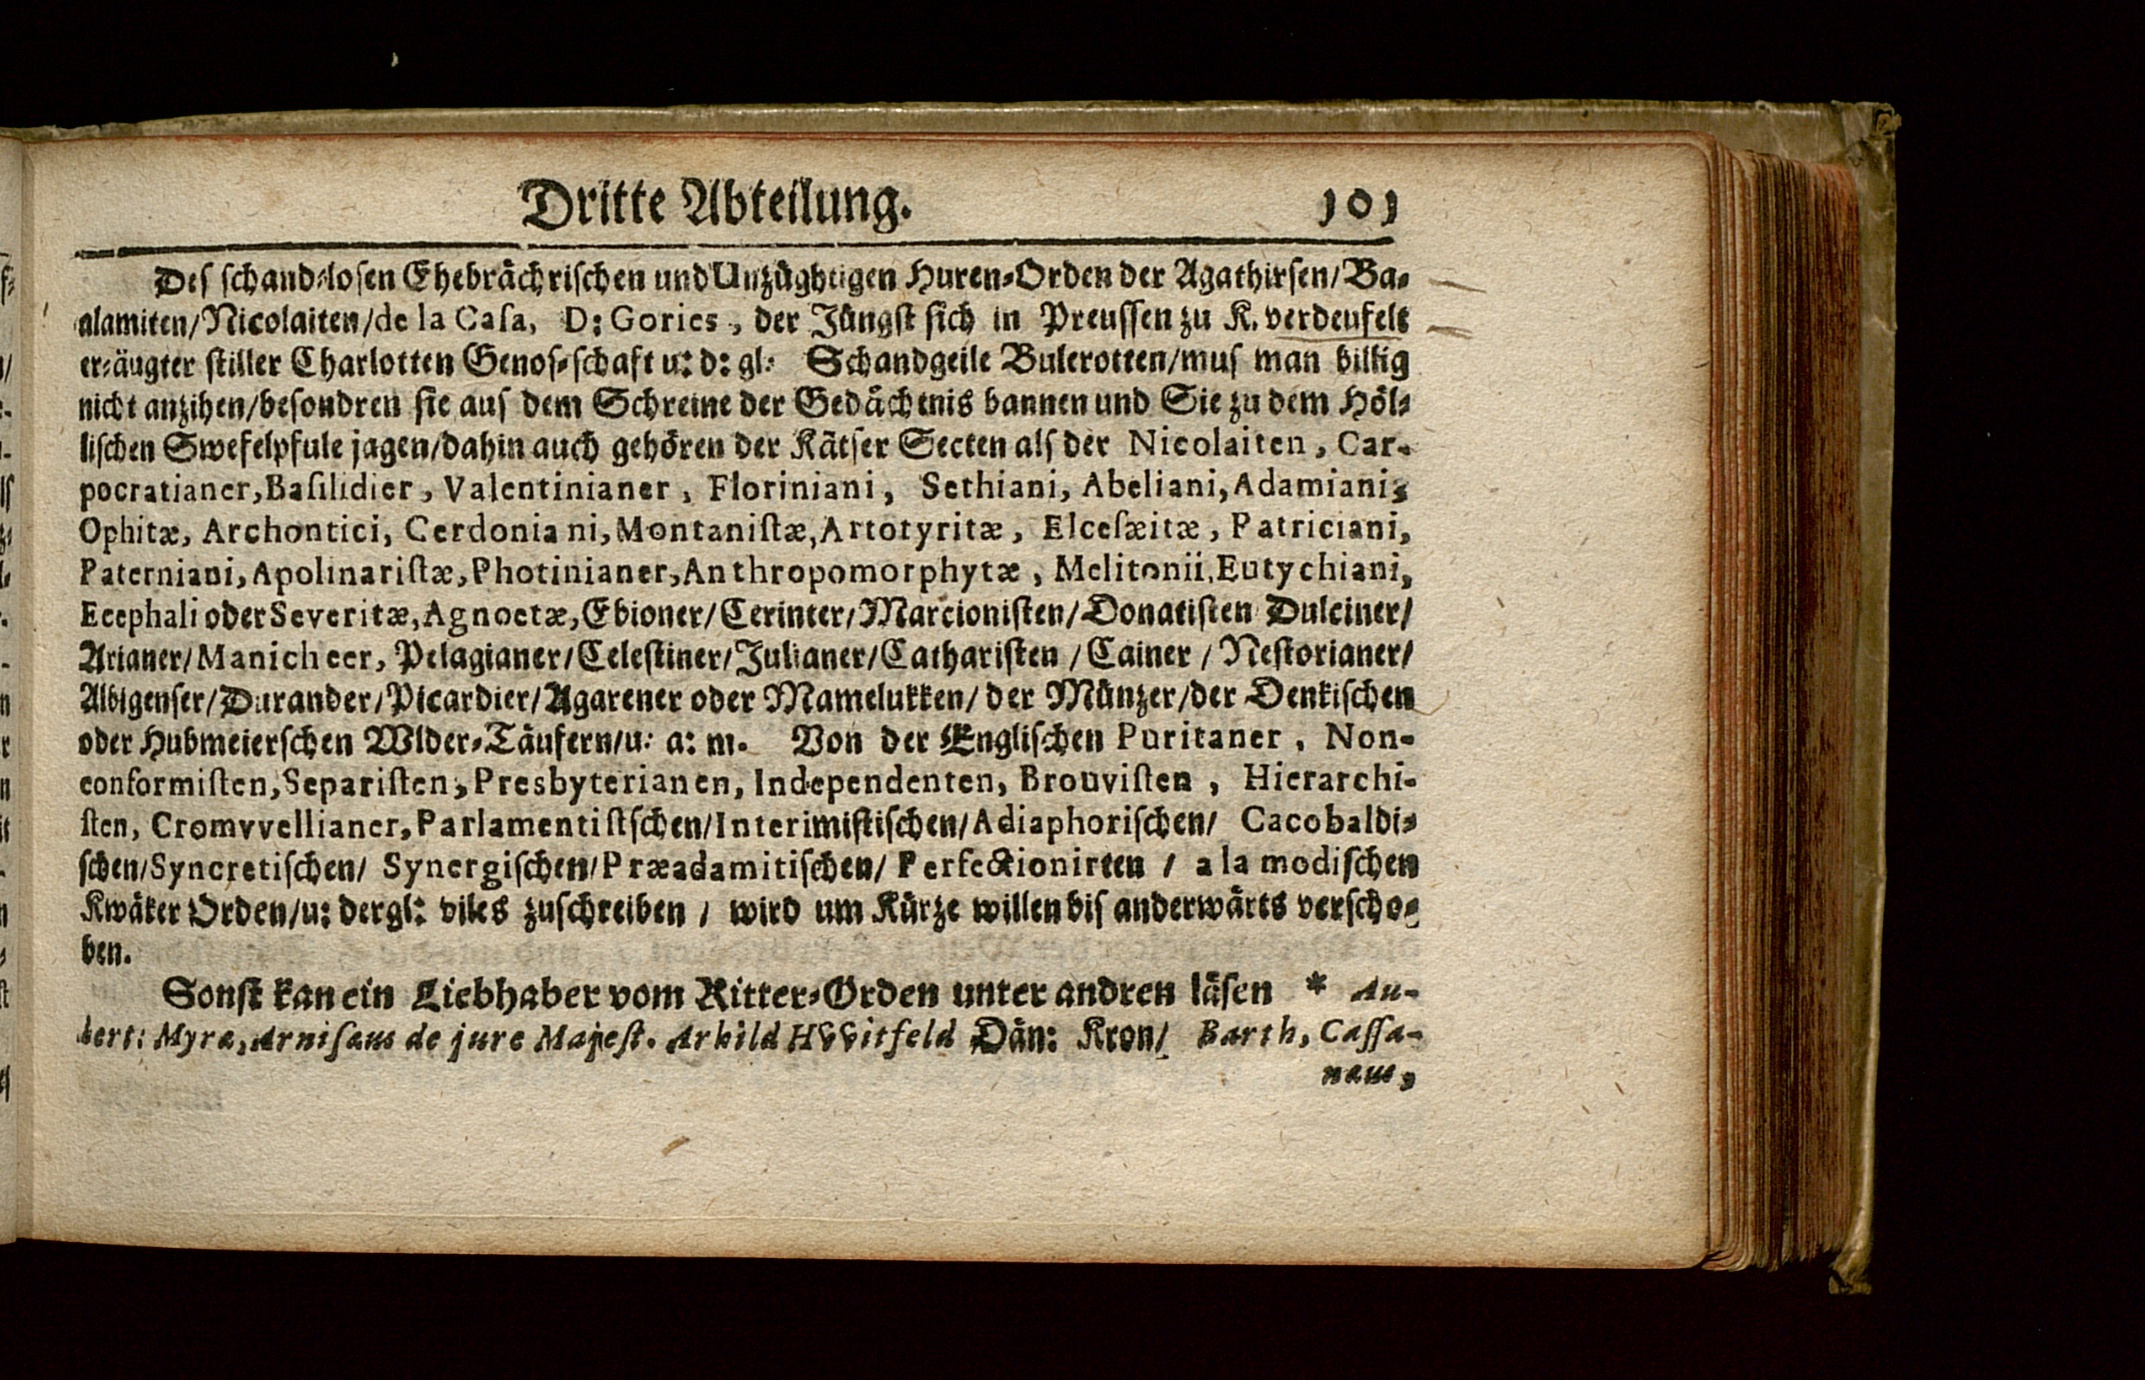 Dritte Abteilung. 101
Des schand-losen Ehebrächrischen und Unzüghtigen Huren-Orden der Agathirsen/Ba-
alamiten/Nicolaiten/de la Casa, D: Gories, der Jüngst sich in Preussen zu K. verdeufelt
er-äugter stiller Charlotten Genos-schaft u: d: gl: Schandgeile Bulerotten/mus man billig
nicht anzihen/besondren sie aus dem Schreine der Gedächtnis bannen und Sie zu dem Höl-
lischen Swefelpfule jagen/dahin auch gehören der Kätser Secten als der Nicolaiten, Car-
pocratianer, Basilidier, Valentinianer, Floriniani, Sethiani, Abeliani, Adamiani,
Ophitæ, Archontici, Cerdoniani, Montanistæ, Artotyritæ, Elcesæitæ, Patriciani,
Paterniani, Apolinaristæ, Photinianer, Anthropomorphytæ, Melitonii, Eutychiani,
Ecephali oder Severitæ, Agnoetæ, Ebioner/Cerinter/Marcionisten/Donatisten Dulciner/
Arianer/Manicheer, Pelagianer/Celestiner/Julianer/Catharisten/Cainer/Nestorianer/
Albigenser/Durander/Picardier/Agarener oder Mamelukken/der Münzer/der Denkischen
oder Hubmeierschen Wider-Täufern/u: a: m. Von der Englischen Puritaner, Non-
conformisten, Separisten, Presbyterianen, Independenten, Brouvisten, Hierarchi-
sten, Cromvvellianer, Parlamentistschen/Interimistischen/Adiaphorischen/ Cacobaldi-
schen/Syncretischen/ Synergischen/Præadamitischen/ Perfectionirten/ a la modischen
Kwäker Orden/u: dergl: viles zuschreiben/ wird um Kürze willen bis anderwärts verscho-
ben.
Sonst kan ein Liebhaber vom Ritter-Orden unter andren läsen * Au-
bert: Myræ, Arnisaus de jure Majest. Arhild HVVitfeld Dän: Kron/ Barth, Cassa-
naus,